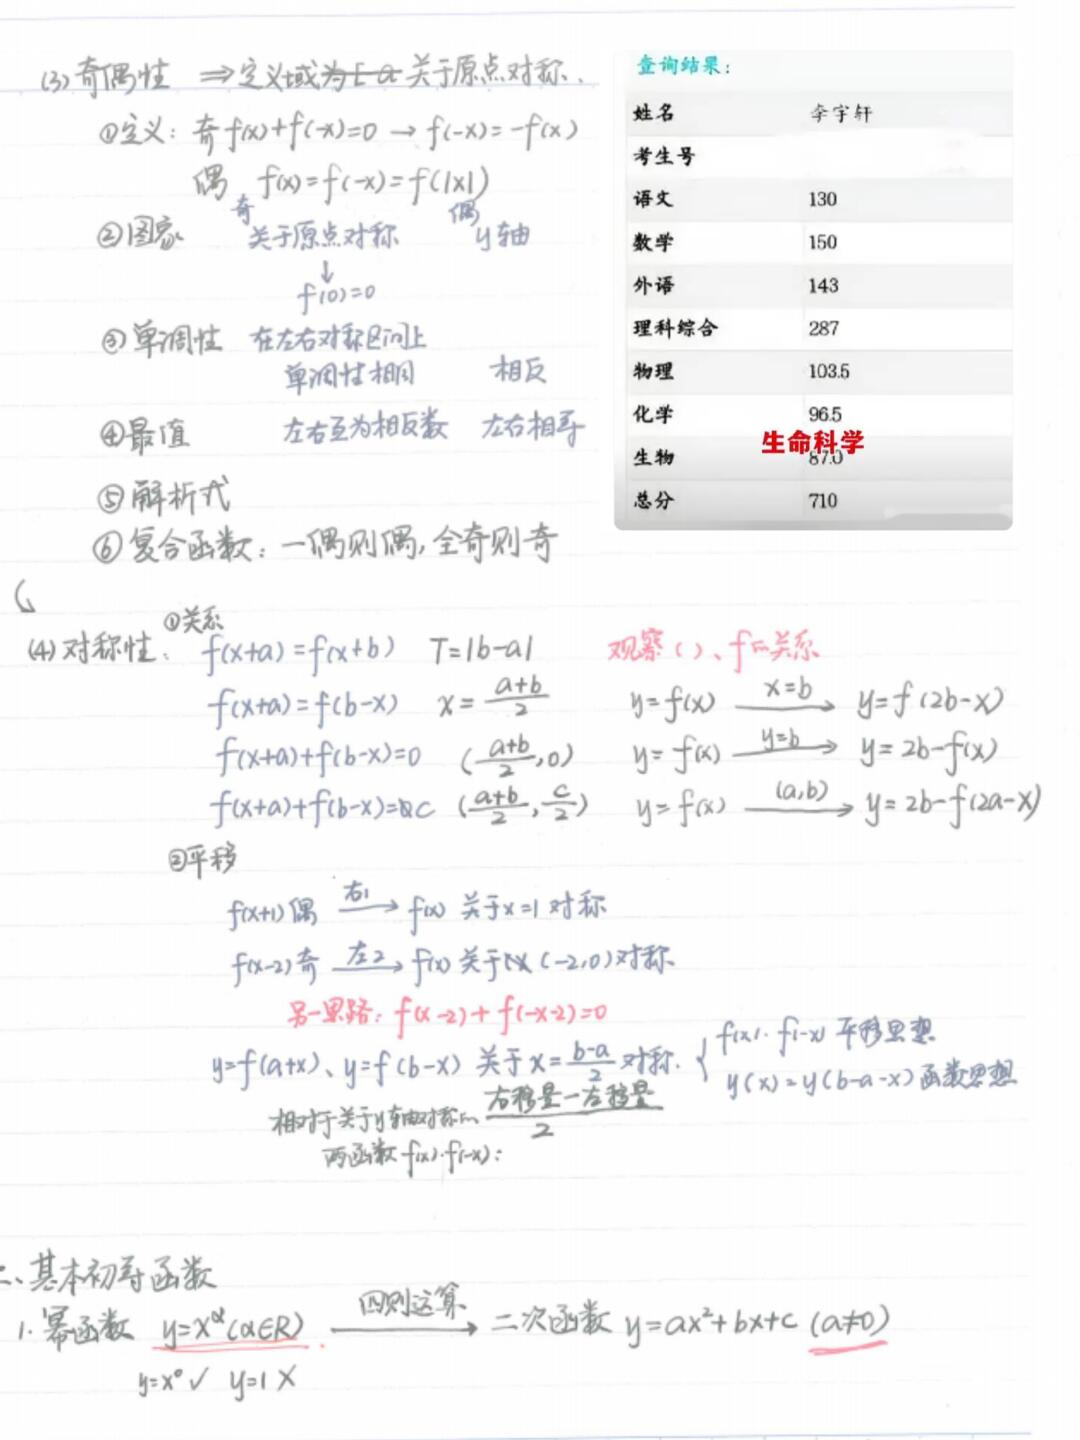 (3) 奇偶性 ⇒ 定义域为[-a 关于原点对称.
①定义: 奇 f(x)+f(-x)=0 → f(-x)=-f(x)
偶 f(x)=f(-x)=f(|x|)
奇 偶
②图象 关于原点对称 y轴
↓
f(0)=0
③单调性 在左右对称区间上
单调性相同 相反
④最值 左右互为相反数 左右相等
⑤解析式
⑥复合函数: 一偶则偶, 全奇则奇
查询结果:
姓名 李宇轩
考生号
语文 130
数学 150
外语 143
理科综合 287
物理 103.5
化学 96.5
生命科学
生物 87.0
总分 710
①关系
(4) 对称性: f(x+a)=f(x+b) T=|b-a|
f(x+a)=f(b-x) x=\frac{a+b}{2}
f(x+a)+f(b-x)=0 (\frac{a+b}{2},0)
f(x+a)+f(b-x)=c (\frac{a+b}{2},\frac{c}{2})
观察( )、f的关系
y=f(x) \xrightarrow{x=b} y=f(2b-x)
y=f(x) \xrightarrow{y=b} y=2b-f(x)
y=f(x) \xrightarrow{(a,b)} y=2b-f(2a-x)
②平移
f(x+1)偶 \xrightarrow{右1} f(x) 关于x=1对称
f(x-2)奇 \xrightarrow{左2} f(x) 关于(-2,0)对称
另一思路: f(x-2)+f(-x-2)=0
y=f(a+x)、y=f(b-x) 关于x=\frac{b-a}{2}对称.
f(x)·f(-x) 平移思想
y(x)=y(b-a-x) 函数思想
相对于关于y轴对称的 \frac{右移量-左移量}{2}
两函数f(x)·f(-x):
二、基本初等函数
1. 幂函数 y=x^α(α∈R) \xrightarrow{四则运算} 二次函数 y=ax²+bx+c (a≠0)
y=x⁰ ✓ y=1 ×